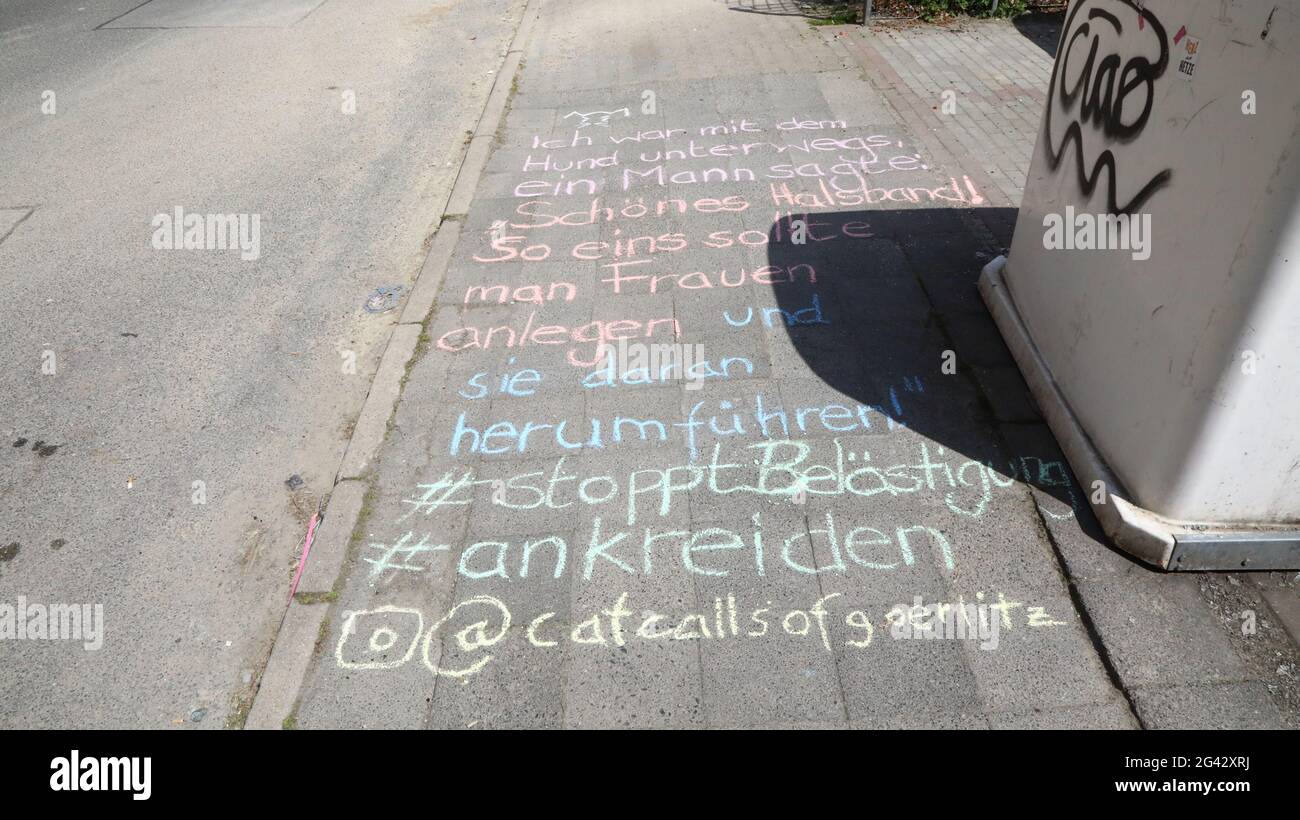 Ich war mit dem
Hund unterwegs,
ein Mann sagte:
"Schönes Halsband!
So eins sollte
man Frauen
anlegen und
sie daran
herumführen!"
#stopptBelästigung
#ankreiden
@catcallsofgoerlitz
Ciao
HETZE
alamy
alamy
Image ID: 2G42XRJ
www.alamy.com